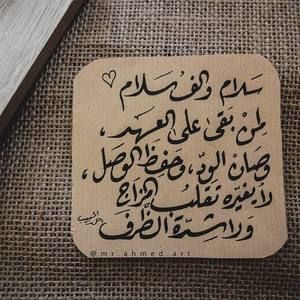 سَلام والف سَلام
لِمن بَقىٰ على العهد ،
وصَان الودّ ، وحَفِظ الوصل ،
لا يغيّره تقلب المزاج
ولا شدّة الظّرف
@mr.ahmed.art